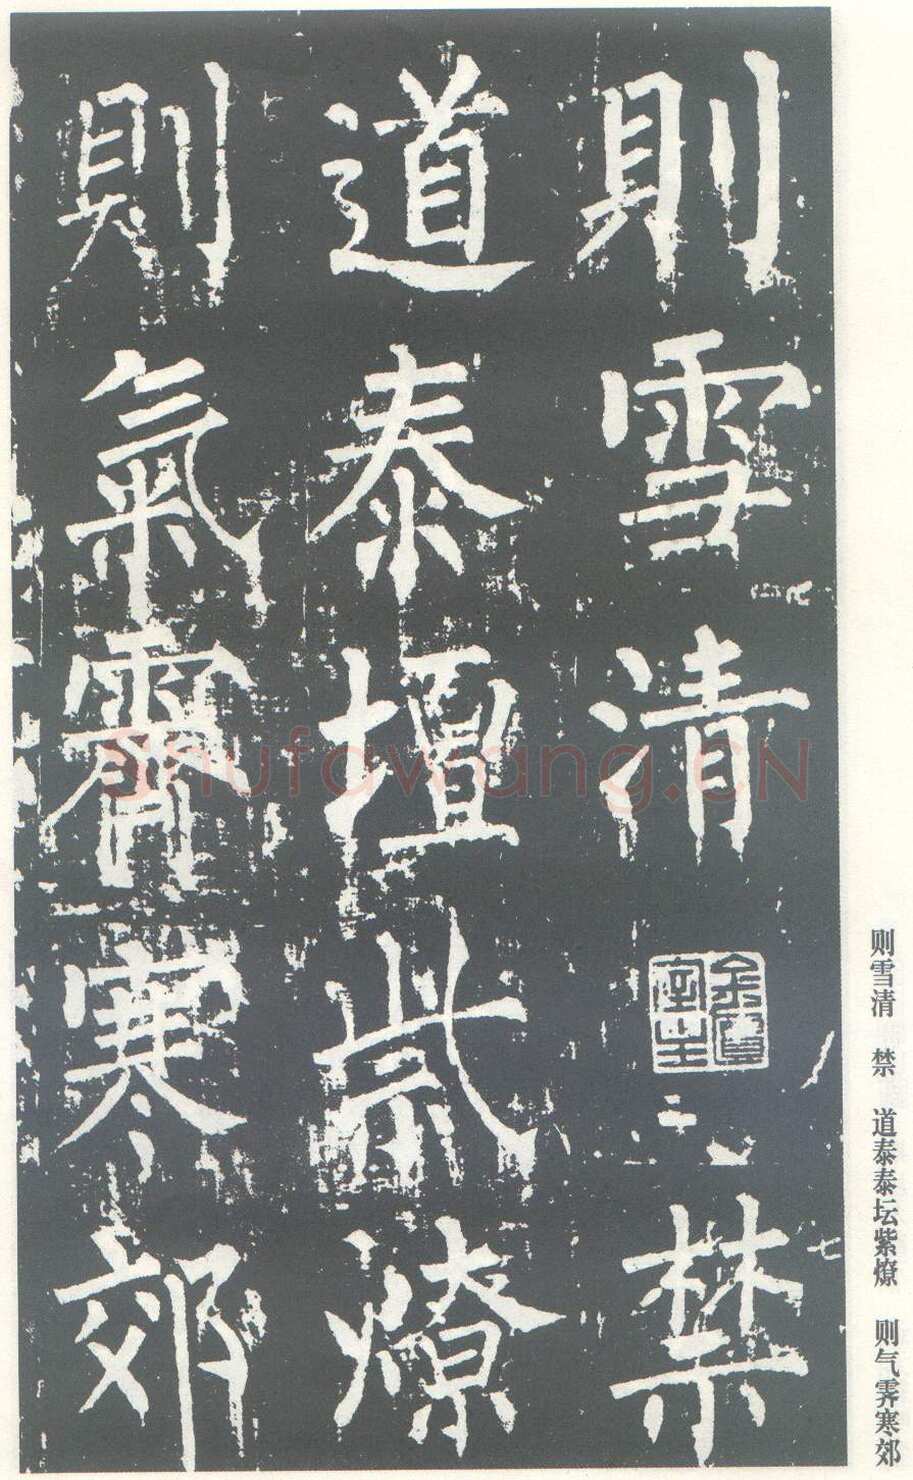 則雪清禁
道泰壇紫燎
則氣霽寒郊
则雪清 禁 道泰泰坛紫燎 则气霁寒郊
Shufawang.CN